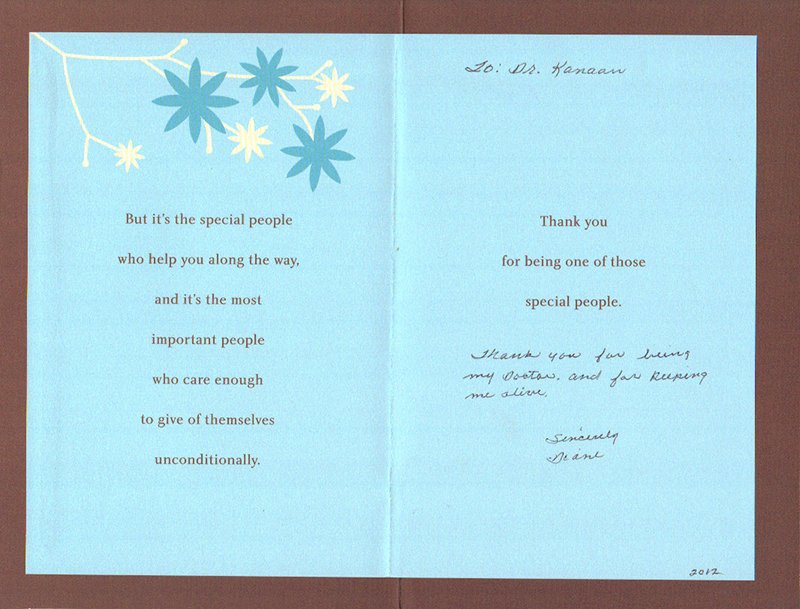 But it's the special people
who help you along the way,
and it's the most
important people
who care enough
to give of themselves
unconditionally.
To: Dr. Kanaan
Thank you
for being one of those
special people.
Thank you for being
my Doctor, and for keeping
me alive.
Sincerely
Diane
2012